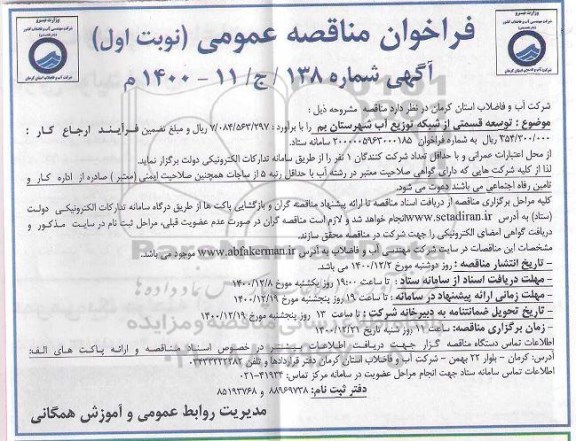 وزارت نیرو
شرکت آب و فاضلاب استان کرمان
فراخوان مناقصه عمومی (نوبت اول)
آگهی شماره ۱۳۸ /ج/ ۱۱ - ۱۴۰۰ م
شرکت آب و فاضلاب استان کرمان در نظر دارد مناقصه مشروحه ذیل :
موضوع : توسعه قسمتی از شبکه توزیع آب شهرستان بم را با برآورد : ۷/۰۸۴/۵۶۳/۲۹۷ ریال و مبلغ تضمین فرآیند ارجاع کار :
۳۵۴/۳۰۰/۰۰۰ ریال به شماره فراخوان ۲۰۰۰۰۰۵۹۶۳۰۰۰۱۸۵ سامانه ستاد.
از محل اعتبارات عمرانی و با حداقل تعداد شرکت کنندگان ۱ نفر را از طریق سامانه تدارکات الکترونیکی دولت برگزار نماید.
لذا از کلیه شرکت هایی که دارای گواهی صلاحیت معتبر در رشته آب با حداقل رتبه ۵ از ساجات همچنین صلاحیت ایمنی (معتبر) صادره از اداره کار و
تامین رفاه اجتماعی می باشند دعوت می شود.
کلیه مراحل برگزاری مناقصه از دریافت اسناد مناقصه تا ارائه پیشنهاد مناقصه گران و بازگشایی پاکت ها از طریق درگاه سامانه تدارکات الکترونیکی دولت
(ستاد) به آدرس www.setadiran.ir انجام خواهد شد و لازم است مناقصه گران در صورت عدم عضویت قبلی، مراحل ثبت نام در سایت مذکور و
دریافت گواهی امضای الکترونیکی را جهت شرکت در مناقصه محقق سازند.
مشخصات این مناقصات در سایت شرکت مهندسی آب و فاضلاب به آدرس www.abfakerman.ir موجود می باشد.
- تاریخ انتشار مناقصه : روز دوشنبه مورخ ۱۴۰۰/۱۲/۲ می باشد.
- مهلت دریافت اسناد از سامانه ستاد : تا ساعت ۱۹:۰۰ روز یکشنبه مورخ ۱۴۰۰/۱۲/۸
- مهلت زمانی ارائه پیشنهاد در سامانه : تا ساعت ۱۹ روز پنجشنبه مورخ ۱۴۰۰/۱۲/۱۹
- تاریخ تحویل ضمانتنامه به دبیرخانه شرکت : تا ساعت ۱۳ روز پنجشنبه مورخ ۱۴۰۰/۱۲/۱۹
- زمان برگزاری مناقصه: ساعت ۱۹ روز شنبه تاریخ ۱۴۰۰/۱۲/۲۱
اطلاعات تماس دستگاه مناقصه گزار جهت دریافت اطلاعات بیشتر در خصوص اسناد مناقصه و ارائه پاکت های الف:
آدرس: کرمان - بلوار ۲۲ بهمن - شرکت آب و فاضلاب استان کرمان دفتر قراردادها و تلفن ۰۳۴۳۳۲۲۲۲۸۲
اطلاعات تماس سامانه ستاد جهت انجام مراحل عضویت در سامانه مرکز تماس: ۴۱۹۳۴-۰۲۱
دفتر ثبت نام: ۸۸۹۶۹۷۳۸ و ۸۵۱۹۳۷۶۸
مدیریت روابط عمومی و آموزش همگانی